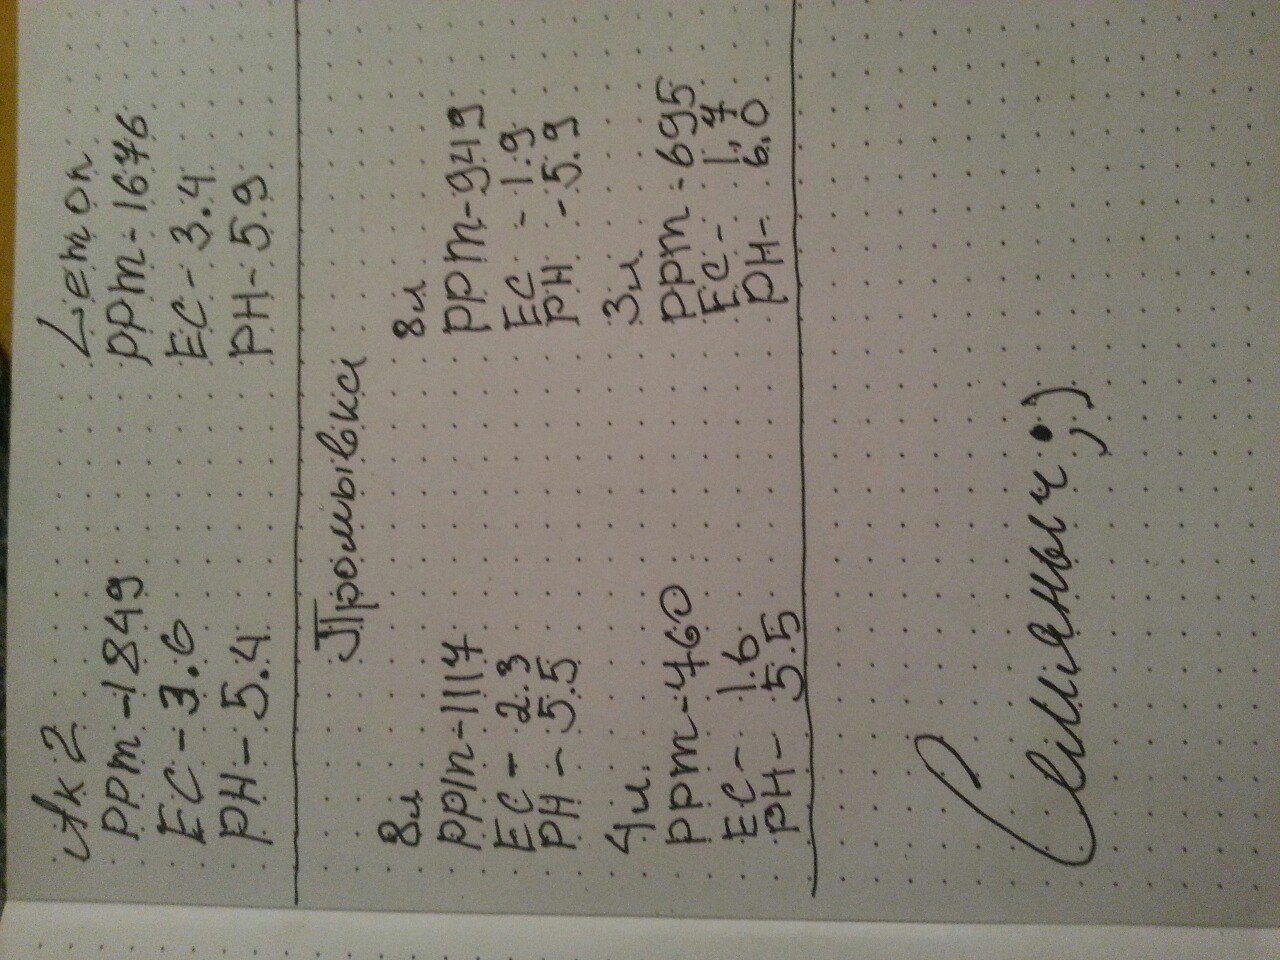 Ak2 Lemon
PPm - 1849 PPm - 1676
EC - 3.6 EC - 3.4
PH - 5.4 PH - 5.9
Промывка
8л 8л
PPm - 1117 PPm - 949
EC - 2.3 EC - 1.9
PH - 5.5 PH - 5.9
4л 3л
PPm - 760 PPm - 695
EC - 1.6 EC - 1.7
PH - 5.5 PH - 6.0
Семёныч ;)